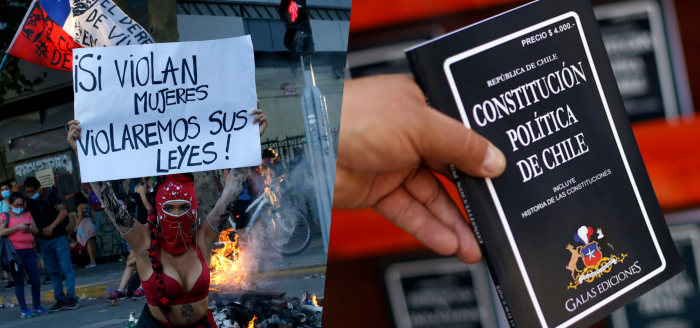 EL DERE
DE VIV
¡Si VIOLAN
MUJERES
VIOLAREMOS SUS
LEYES!
PRECIO $ 4.000.-
REPÚBLICA DE CHILE
CONSTITUCIÓN
POLÍTICA
DE CHILE
INCLUYE
HISTORIA DE LAS CONSTITUCIONES
GALAS EDICIONES